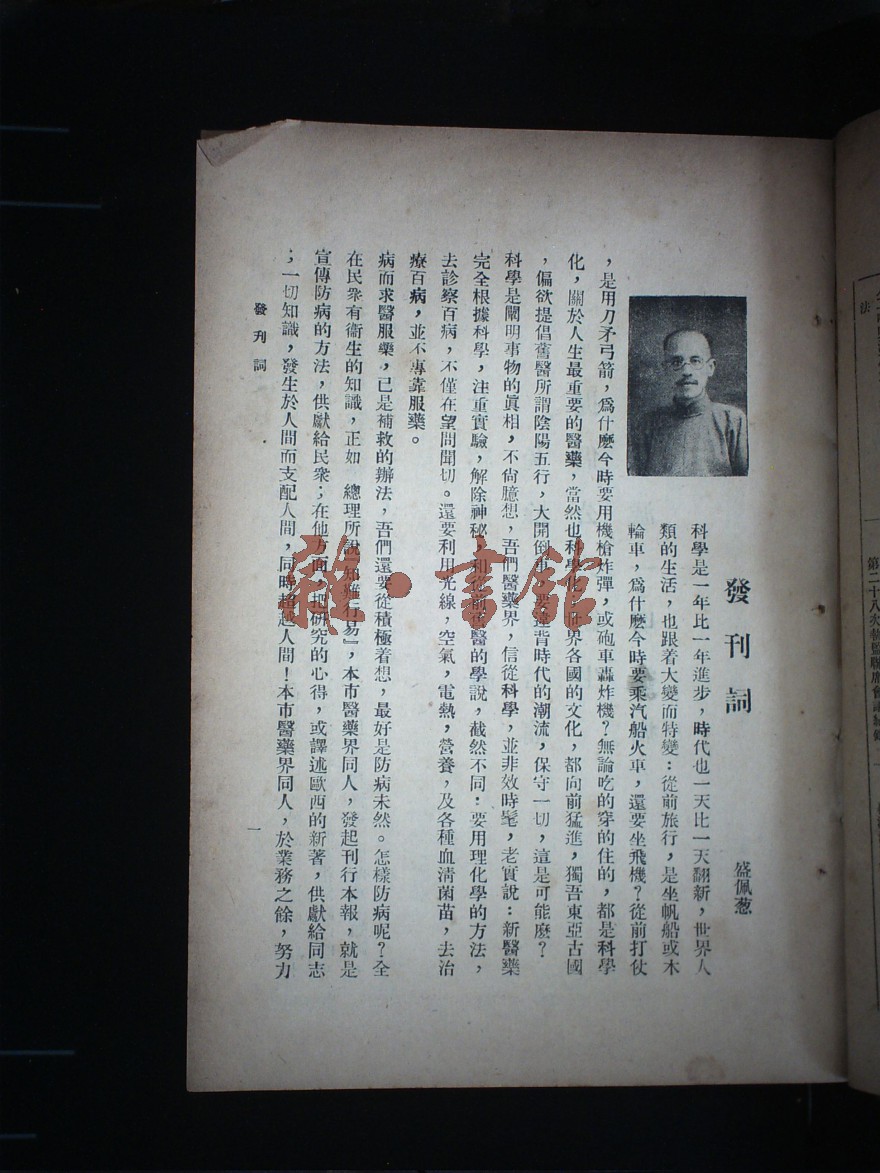 發刊詞
盛佩葱
科學是一年比一年進步，時代也一天比一天翻新，世界人
類的生活，也跟着大變而特變：從前旅行，是坐帆船或木
輪車，爲什麽今時要乘汽船火車，還要坐飛機？從前打仗
，是用刀矛弓箭，爲什麽今時要用機槍炸彈，或砲車轟炸機？無論吃的穿的住的，都是科學
化，關於人生最重要的醫藥，當然也科學化，世界各國的文化，都向前猛進，獨吾東亞古國
，偏欲提倡舊醫所謂陰陽五行，大開倒車，要違背時代的潮流，保守一切，這是可能麽？
科學是闡明事物的眞相，不尙臆想，吾們醫藥界，信從科學，並非效時髦，老實說：新醫藥
完全根據科學，注重實驗，解除神秘，和從前舊醫的學說，截然不同：要用理化學的方法，
去診察百病，不僅在望問聞切。還要利用光線，空氣，電熱，營養，及各種血清菌苗，去治
療百病，並不專靠服藥。
病而求醫服藥，已是補救的辦法，吾們還要從積極着想，最好是防病未然。怎樣防病呢？全
在民衆有衞生的知識，正如　總理所說『知難行易』，本市醫藥界同人，發起刊行本報，就是
宣傳防病的方法，供獻給民衆；在他方面，把研究的心得，或譯述歐西的新著，供獻給同志
；一切知識，發生於人間而支配人間，同時超越人間！本市醫藥界同人，於業務之餘，努力
發刊詞
一
雜·書館
法
第二十八次執監聯席會議紀錄